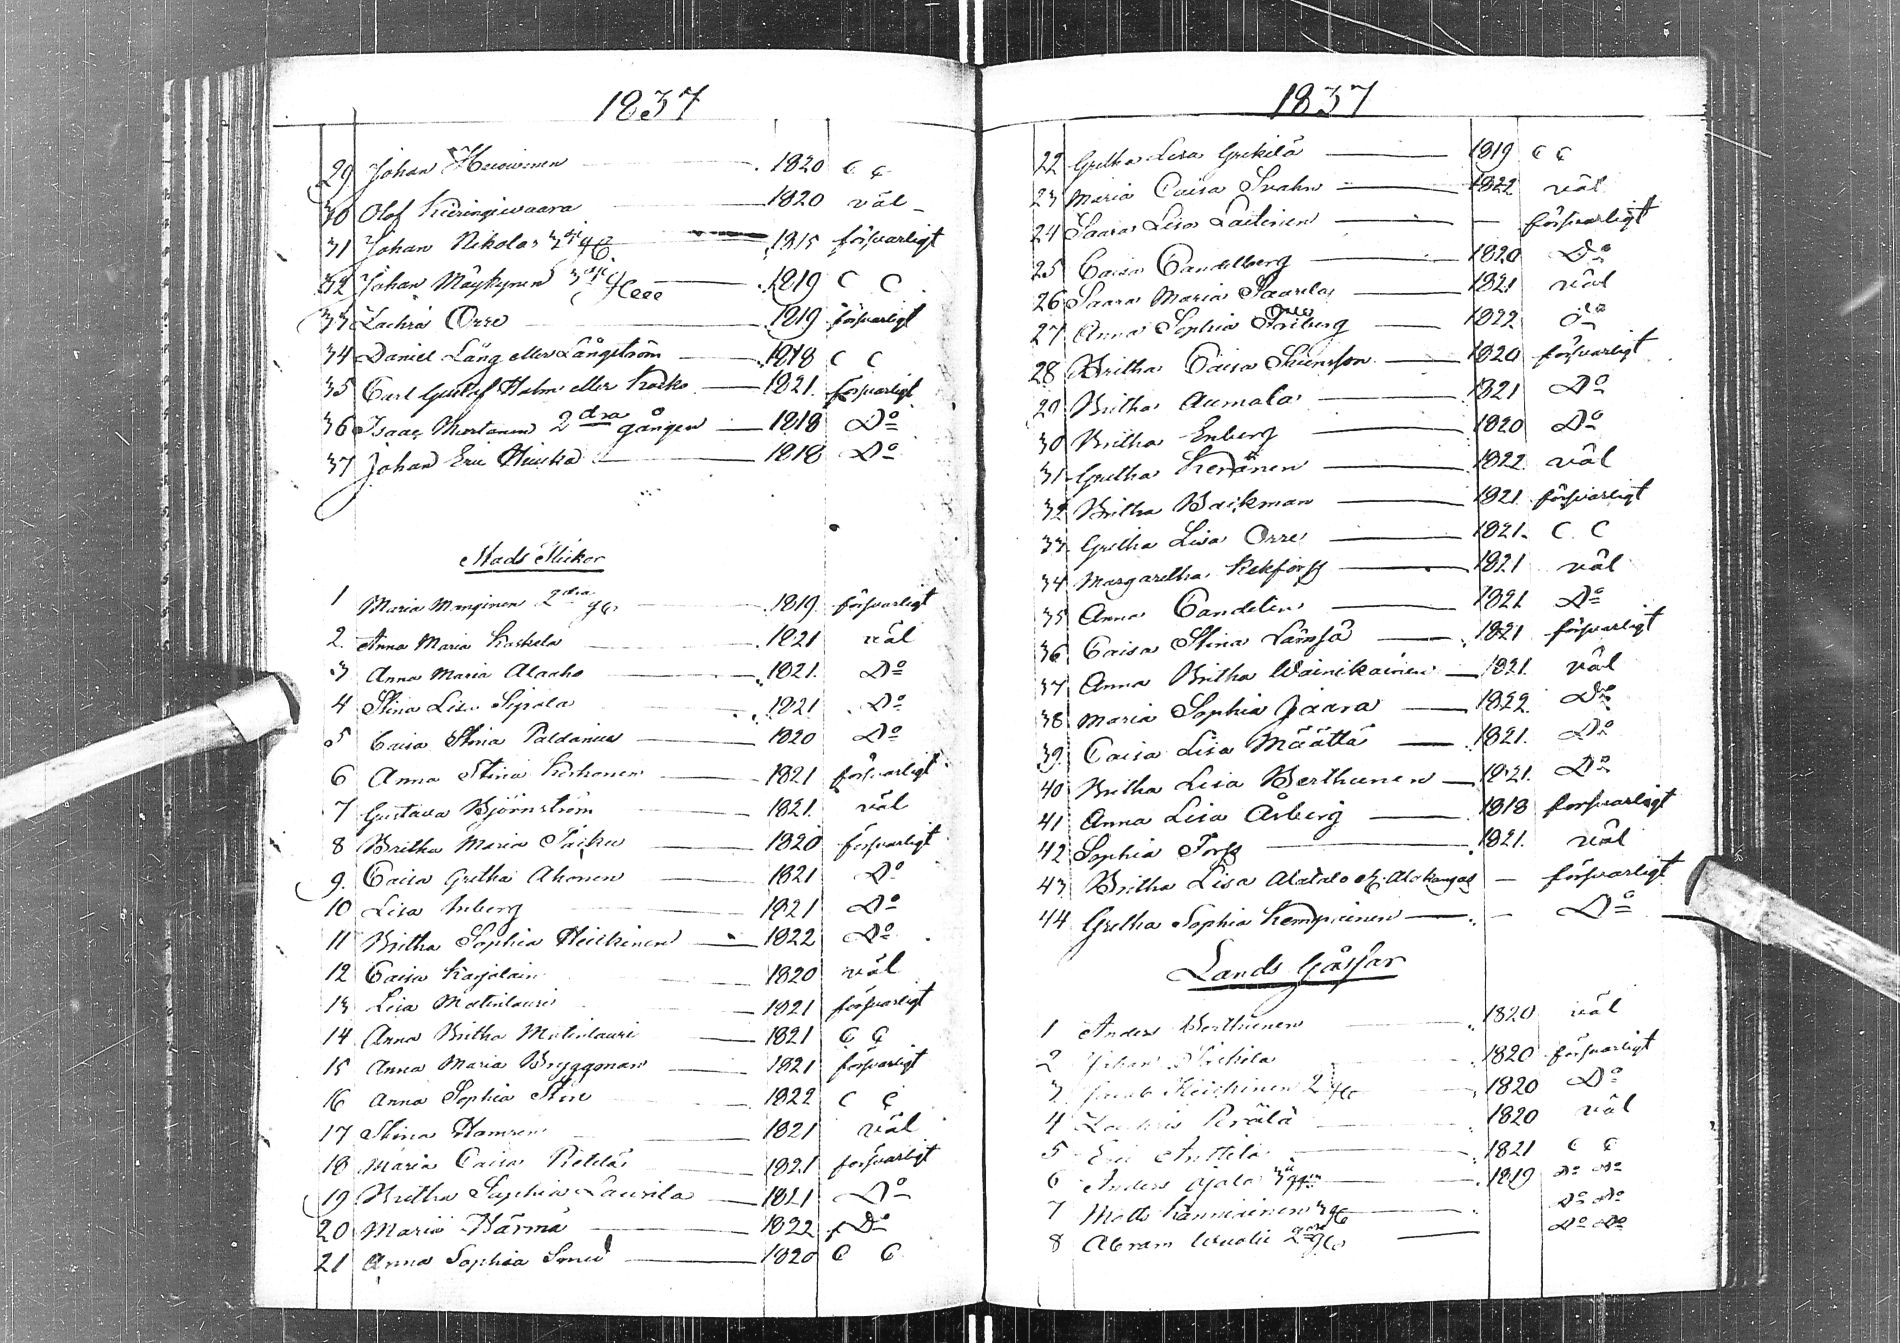 1837
29 Johan 1820 C C
30 Olof Kuringiwaara 1820 väl
31 Johan Nikolas 3dje 1815 försvarligt
32 Johan Mäykynen 3dje 1819 C C
33 Zachris Orre 1819 försvarligt
34 Daniel Lång eller Långström 1818 C C
35 Carl Gustaf Holm eller Kocko 1821 försvarligt
36 Isaac 2dra gången 1818 Do
37 Johan Eric 1818 Do
Stads Flickor
1 Maria Manginen 2dra 1819 försvarligt
2 Anna Maria Koskela 1821 väl
3 Anna Maria Alaaho 1821 Do
4 Stina Lisa 1821 Do
5 Caisa Stina Paldanius 1820 Do
6 Anna Stina 1821 försvarligt
7 Gustava Björnström 1821 väl
8 Britha Maria 1820 försvarligt
9 Caisa Gretha Ahonen 1821 Do
10 Lisa Inberg 1821 Do
11 Britha Sophia Heickinen 1822 Do
12 Caisa Karjalain 1820 väl
13 Lisa Matinlauri 1821 försvarligt
14 Anna Britha Matinlauri 1821 C C
15 Anna Maria Bryggman 1821 försvarligt
16 Anna Sophia 1822 C C
17 Stina Hamren 1821 väl
18 Maria Caisa Pietilä 1821 försvarligt
19 Britha Sophia Laurila 1821 Do
20 Maria Härmä 1822 Do
21 Anna Sophia Smed 1820 C C
1837
22 Gretha Lisa Grekilä 1819 C C
23 Maria Caisa Svahn 1822 väl
24 Saara Lisa Laitinen — försvarligt
25 Caisa Candelberg 1820 Do
26 Saara Maria Saarela 1821 väl
27 Anna Sophia Friberg 1822 Do
28 Britha Caisa 1820 försvarligt
29 Britha Aumala 1821 Do
30 Britha Enberg 1820 Do
31 Gretha Keränen 1822 väl
32 Britha Backman 1821 försvarligt
33 Gretha Lisa Orre 1821 C C
34 Margaretha Kekforss 1821 väl
35 Anna Candelin 1821 Do
36 Caisa Stina Lämsä 1821 försvarligt
37 Anna Britha Wainikainen 1821 väl
38 Maria Sophia Jaara 1822 Do
39 Caisa Lisa Määttä 1821 Do
40 Britha Lisa Berthunen 1821 Do
41 Anna Lisa Åsberg 1818 försvarligt
42 Sophia Forss 1821 väl
43 Britha Lisa Alatalo el. Alakangas — försvarligt
44 Gretha Sophia Kemppainen — Do
Lands Gåssar
1 Anders Berthunen 1820 väl
2 Johan 1820 försvarligt
3 Jacob Heickinen 2 1820 Do
4 Zachris 1820 väl
5 Eric Anttila 1821 C C
6 Anders Ojala 3 1819 Do Do
7 Matts Do Do
8 Abram 2dra Do Do